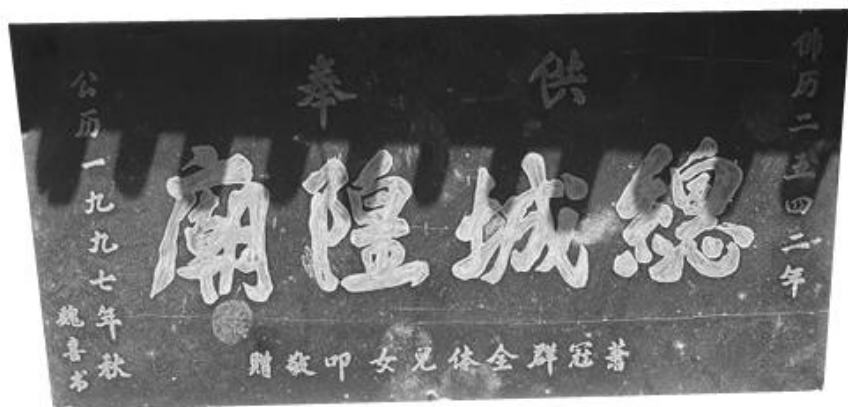 佛历二五四二年
供奉
總城隍廟
冠群全体兒女叩敬贈
公历一九九七年秋
魏喜书